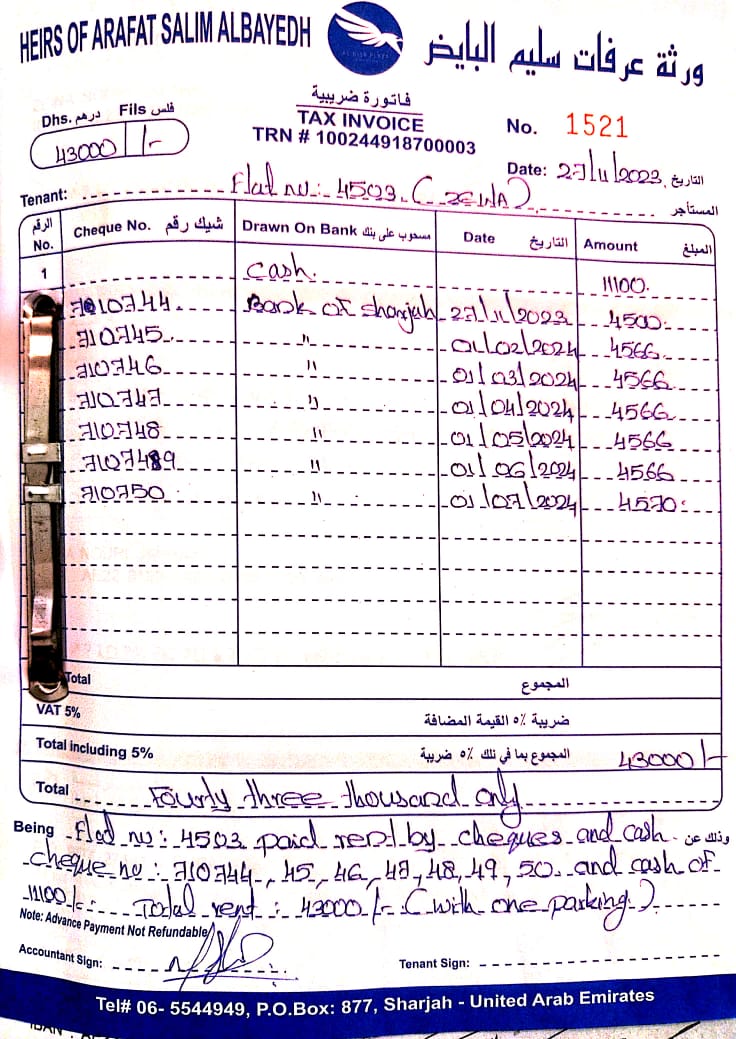 HEIRS OF ARAFAT SALIM ALBAYEDH
ورثة عرفات سليم البايض
Dhs. درهم Fils فلس
43000 /-
فاتورة ضريبية
TAX INVOICE
TRN # 100244918700003
No. 1521
Date: 27/11/2023 التاريخ
Tenant: Flad nu: 4503. المستأجر
الرقم No. Cheque No. شيك رقم Drawn On Bank مسحوب على بنك Date التاريخ Amount المبلغ
1 Cash. 11100.
7010744 Bank of Sharjah 27/11/2023 4500
710745 " 01/02/2024 4566
710746 " 01/03/2024 4566
710747 " 01/04/2024 4566
710748 " 01/05/2024 4566
7107489 " 01/06/2024 4566
710750 " 01/07/2024 4570
Total المجموع
VAT 5% ضريبة ٥% القيمة المضافة
Total including 5% المجموع بما في تلك ٥% ضريبة 43000 /-
Total Fourly three thousand only
Being Flad nu: 4503 paid rent by cheques and cash. وذلك عن
cheque no: 710744, 45, 46, 47, 48, 49, 50. and cash of
11100/-. Total rent: 43000/- (with one parking.)
Note: Advance Payment Not Refundable
Accountant Sign: Tenant Sign:
Tel# 06- 5544949, P.O.Box: 877, Sharjah - United Arab Emirates